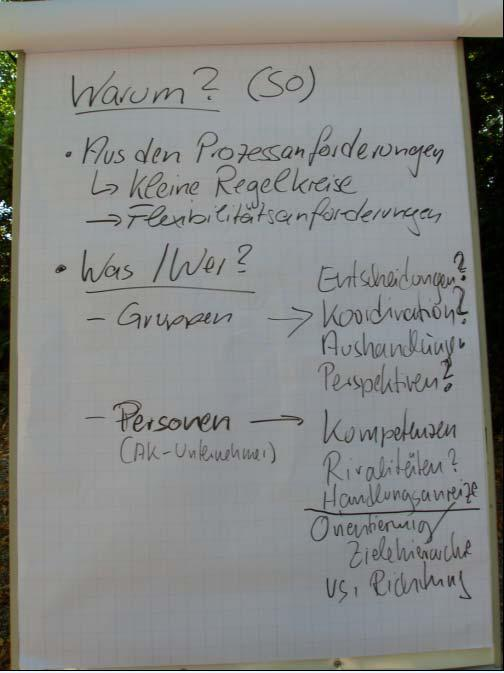 Warum? (So)
• Aus den Prozessanforderungen
↳ Kleine Regelkreise
→ Flexibilitätsanforderungen
• Was / Wer?
– Gruppen → Entscheidungen?
Koordination?
Aushandlung?
Perspektiven?
– Personen → Kompetenzen
(AK-Unternehmer)
Rivalitäten?
Handlungsanreize
Orientierung/
Zielehierarchie
vs. Richtung